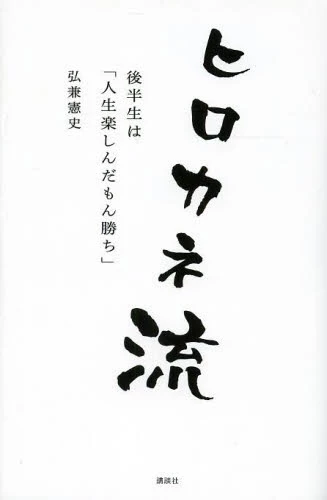 ヒロカネ流
後半生は
「人生楽しんだもん勝ち」
弘兼憲史
講談社